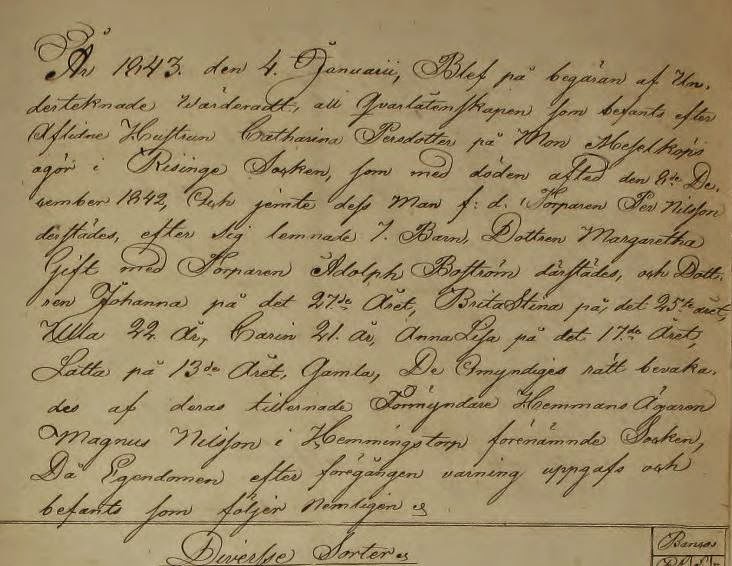 År 1843. den 4. Januarii, Blef på begäran af Un-
dertecknade Wärderadt, all Qvarlåtenskapen som befants efter
Aflidne Hustrun Catharina Persdotter på Mon
ägor i Risinge Socken, som med döden afled den 8de De-
cember 1842, Och jemte dess Man f: d. Torparen Per Nilsson
derstädes, efter sig lemnade 7. Barn, Dottren Margaretha
Gift med Torparen Adolph Boström därstädes, och Dott-
ren Johanna på det 27de Året, Brita Stina på det 25te året,
Ulla 22. År, Carin 21. år, Anna Lisa på det 17de Året,
Lotta på 13de Året, Gamla, De Omyndiges rätt bevaka-
des af deras tillernade Förmyndare Hemmans Ägaren
Magnus Nilsson i Hemmingstorp förenämnde Socken,
Då Egendomen efter föregången varning uppgafs och
befants som följer Nemligen
Diversse Sorter
Banco